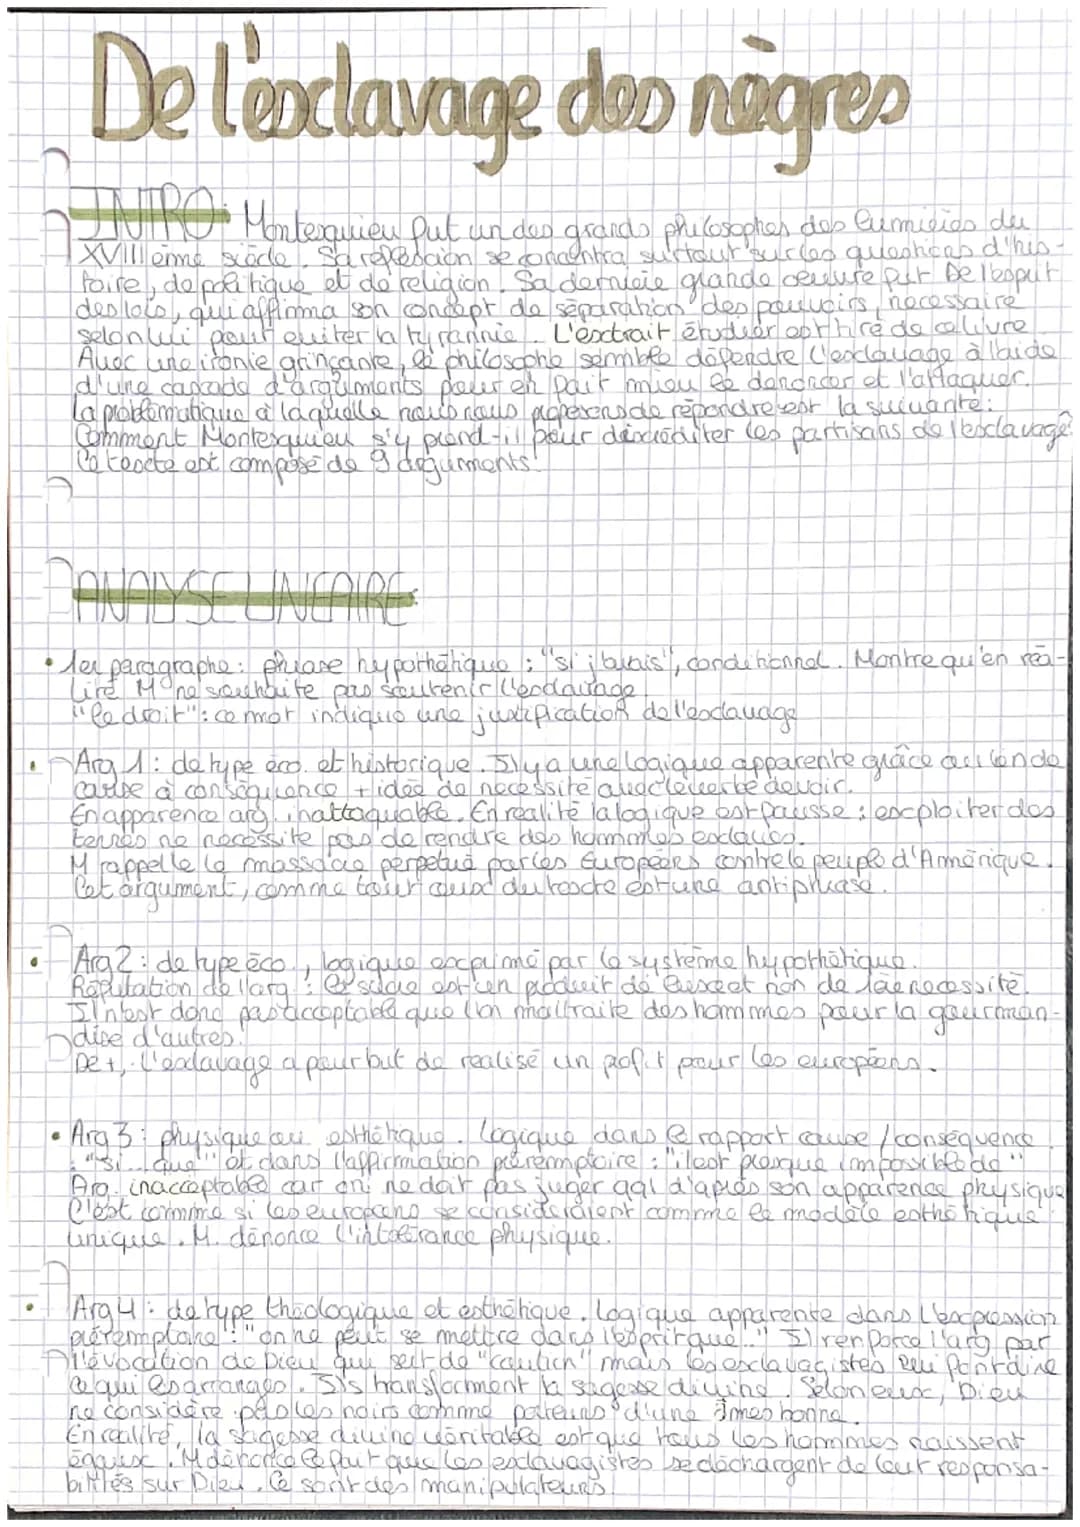 De l'esclavage des nègres
INTRO: Montesquieu fut un des grands philosophes des Lumières du
XVIIIème siècle. Sa réflexion se concentra surtout sur les questions d'his-
toire, de politique et de religion. Sa dernière grande oeuvre fut De l'esprit
des lois, qui affirma son concept de séparation des pouvoirs, nécessaire
selon lui pour éviter la tyrannie. L'extrait étudier est tiré de ce livre.
Avec une ironie grinçante, le philosophe semble défendre l'esclavage à l'aide
d'une cascade d'arguments pour en fait mieu le dénoncer et l'attaquer.
La problématique à laquelle nous nous proposons de répondre est la suivante:
Comment Montesquieu s'y prend-il pour discréditer les partisans de l'esclavage?
Ce texte est composé de 9 arguments.
ANALYSE LINEAIRE:
• 1er paragraphe: phrase hypothétique: "si j'avais", conditionnel. Montre qu'en réa-
lité M ne souhaite pas soutenir l'esclavage.
"le droit": ce mot indique une justification de l'esclavage
• Arg 1: de type éco. et historique. Il y a une logique apparente grâce au lien de
cause à conséquence + idée de nécessité avec le verbe devoir.
En apparence arg. inattaquable. En réalité la logique est fausse: exploiter des
terres ne nécessite pas de rendre des hommes esclaves.
M rappelle le massacre perpétué par les Européens contre le peuple d'Amérique.
Cet argument, comme tout ceux du texte est une antiphrase.
• Arg 2: de type éco., logique exprimé par le système hypothétique.
Réfutation de l'arg.: le sucre est un produit de luxe et non de 1ère necessité.
Il n'est donc pas acceptable que l'on maltraite des hommes pour la gourman-
dise d'autres.
De +, l'esclavage a pour but de realisé un profit pour les européens.
• Arg 3: physique ou esthétique. Logique dans le rapport cause/conséquence
: "si... que" et dans l'affirmation péremptoire: "il est presque impossible de"
Arg. inacceptable car on ne doit pas juger qql d'après son apparence physique
C'est comme si les européens se considéraient comme le modèle esthétique
unique. M. dénonce l'intolérance physique.
• Arg 4: de type théologique et esthétique. Logique apparente dans l'expression
péremptoire: "on ne peut se mettre dans l'esprit que..." Il renforce l'arg par
l'évocation de Dieu qui sert de "caution" mais les esclavagistes lui font dire
ce qui les arranges. Ils transforment la sagesse divine. Selon eux, Dieu
ne considère pas les noirs comme porteurs d'une âmes bonne.
En réalité, la sagesse divine véritable est que tous les hommes naissent
égaux. M dénonce le fait que les esclavagistes se déchargent de leur responsa-
bilités sur Dieu. Ce sont des manipulateurs.